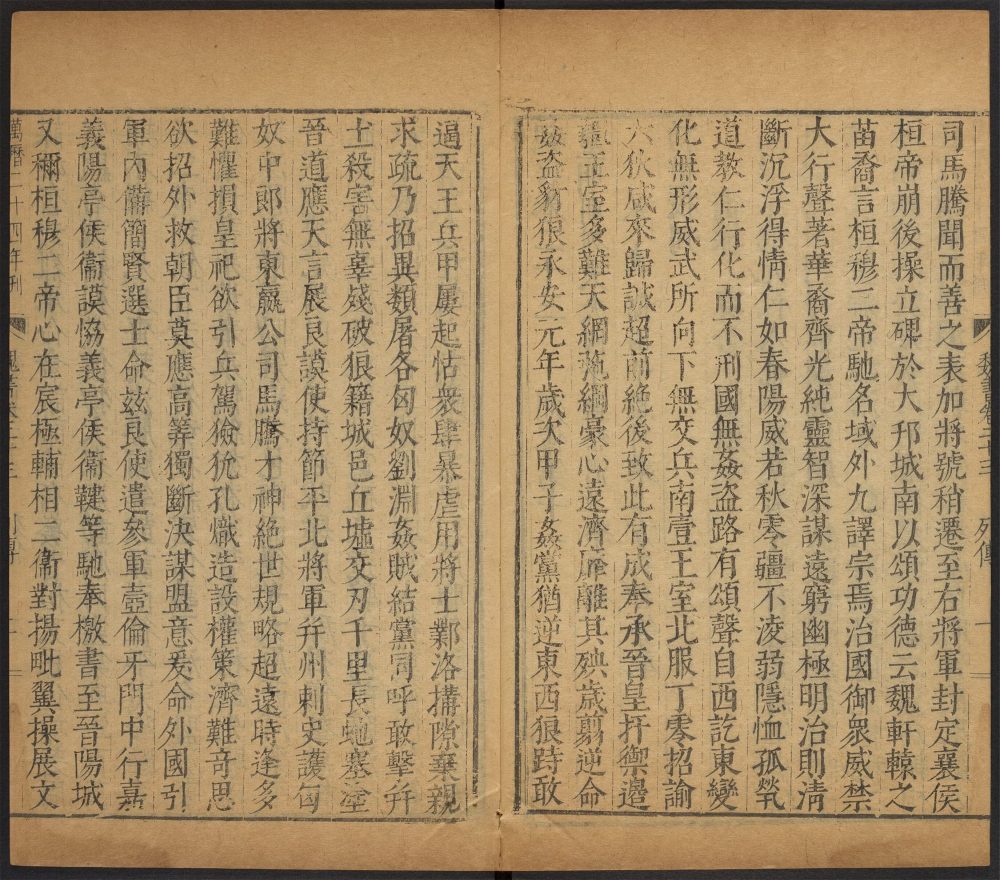 魏書卷二十三 列傳 一
司馬騰聞而善之表加將號稍遷至右將軍封定襄侯
桓帝崩後操立碑於大邗城南以頌功德云魏軒轅之
苗裔言桓穆二帝馳名域外九譯宗焉治國御衆威禁
大行聲著華裔齊光純靈智深謀遠窮幽極明治則清
斷沉浮得情仁如春陽威若秋零疆不淩弱隱恤孤煢
道教仁行化而不刑國無姦盗路有頌聲自西訖東變
化無形威武所向下無交兵南壹王室北服丁零招諭
六狄咸來歸誠超前絶後致此有成奉承晉皇扞禦邊
疆王室多難天網弛綱豪心遠濟靡離其殃歲翦逆命
姦盗豺狼永安元年歲次甲子姦黨猶逆東西狼跱敢
逼天王兵甲屢起怙衆肆暴虐用將士鄴洛搆隙棄親
求疏乃招異類屠各匈奴劉淵姦賊結黨同呼敢擊幷
土殺害無辜殘破狼籍城邑丘墟交刃千里長蛇塞塗
晉道應天言展良謨使持節平北將軍幷州刺史護匈
奴中郎將東嬴公司馬騰才神絶世規略超遠時逢多
難懼損皇祀欲引兵駕獫狁孔熾造設權策濟難竒思
欲招外救朝臣莫應高筭獨斷決謀盟意爰命外國引
軍内備簡賢選士命兹良使遣參軍壺倫牙門中行嘉
義陽亭侯衞謨恊義亭侯衞鞬等馳奉檄書至晉陽城
又稱桓穆二帝心在宸極輔相二衞對揚毗翼操展文
萬曆二十四年刊 魏書卷二十三 列傳 二